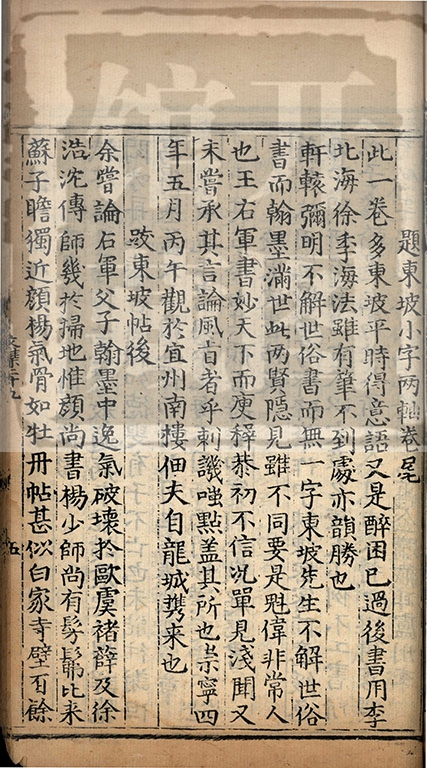 題東坡小字两軸卷尾
此一卷多東坡平時得意語又是醉困已過後書用李
北海徐季海法雖有筆不到處亦韻勝也
軒轅彌明不解世俗書而無一字東坡先生不解世俗
書而翰墨滿世此两賢隱見雖不同要是魁偉非常人
也王右軍書妙天下而庾稺恭初不信况單見淺聞又
未甞承其言論風旨者乎刺譏嗤點盖其所也崇寧四
年五月丙午觀於宜州南樓佃夫自龍城携来也
跋東坡帖後
余嘗論右軍父子翰墨中逸氣破壞於歐虞褚薛及徐
浩沈傳師幾於掃地惟顔尚書楊少師尚有髣髴比来
蘇子瞻獨近顔楊氣骨如牡丹帖甚似白家寺壁百餘